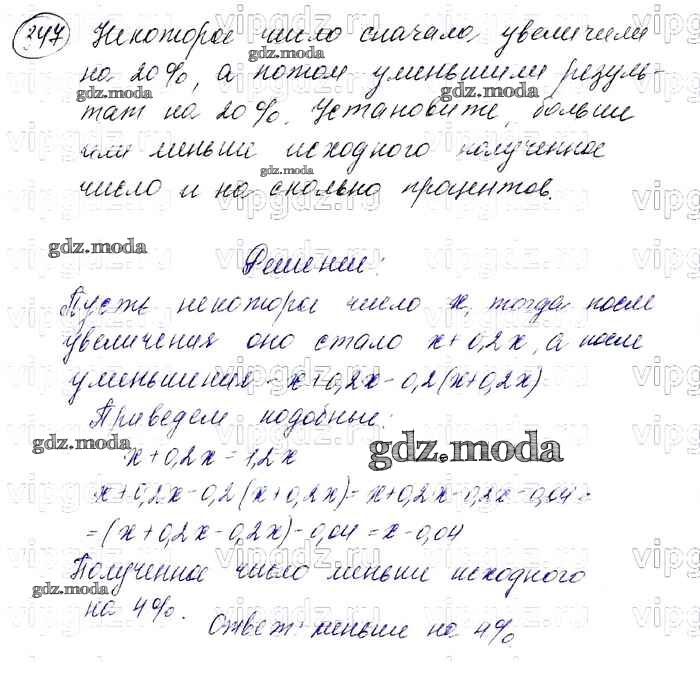 347 Некоторое число сначала увеличили
на 20%, а потом уменьшили резуль-
тат на 20%. Установите, больше
или меньше исходного полученное
число и на сколько процентов.
Решение:
Пусть некоторое число x, тогда после
увеличения оно стало x+0,2x, а после
уменьшения - x+0,2x-0,2(x+0,2x)
Приведем подобные:
x+0,2x=1,2x
x+0,2x-0,2(x+0,2x)=x+0,2x-0,2x-0,04=
=(x+0,2x-0,2x)-0,04=x-0,04
Полученное число меньше исходного
на 4%.
Ответ: меньше на 4%
gdz.moda
gdz.moda
gdz.moda
gdz.moda
gdz.moda
gdz.moda
gdz.moda
gdz.moda
gdz.moda
vipgdz.ru